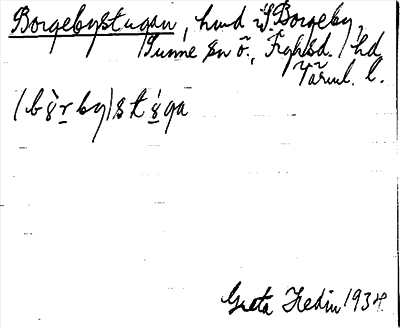 Borgebystugan, hmd i S. Borgeby,
Sunne sn o., Fryksd. hd
Värml. l.
(bȯ̀rby)stúga
Greta Hedin 1934.